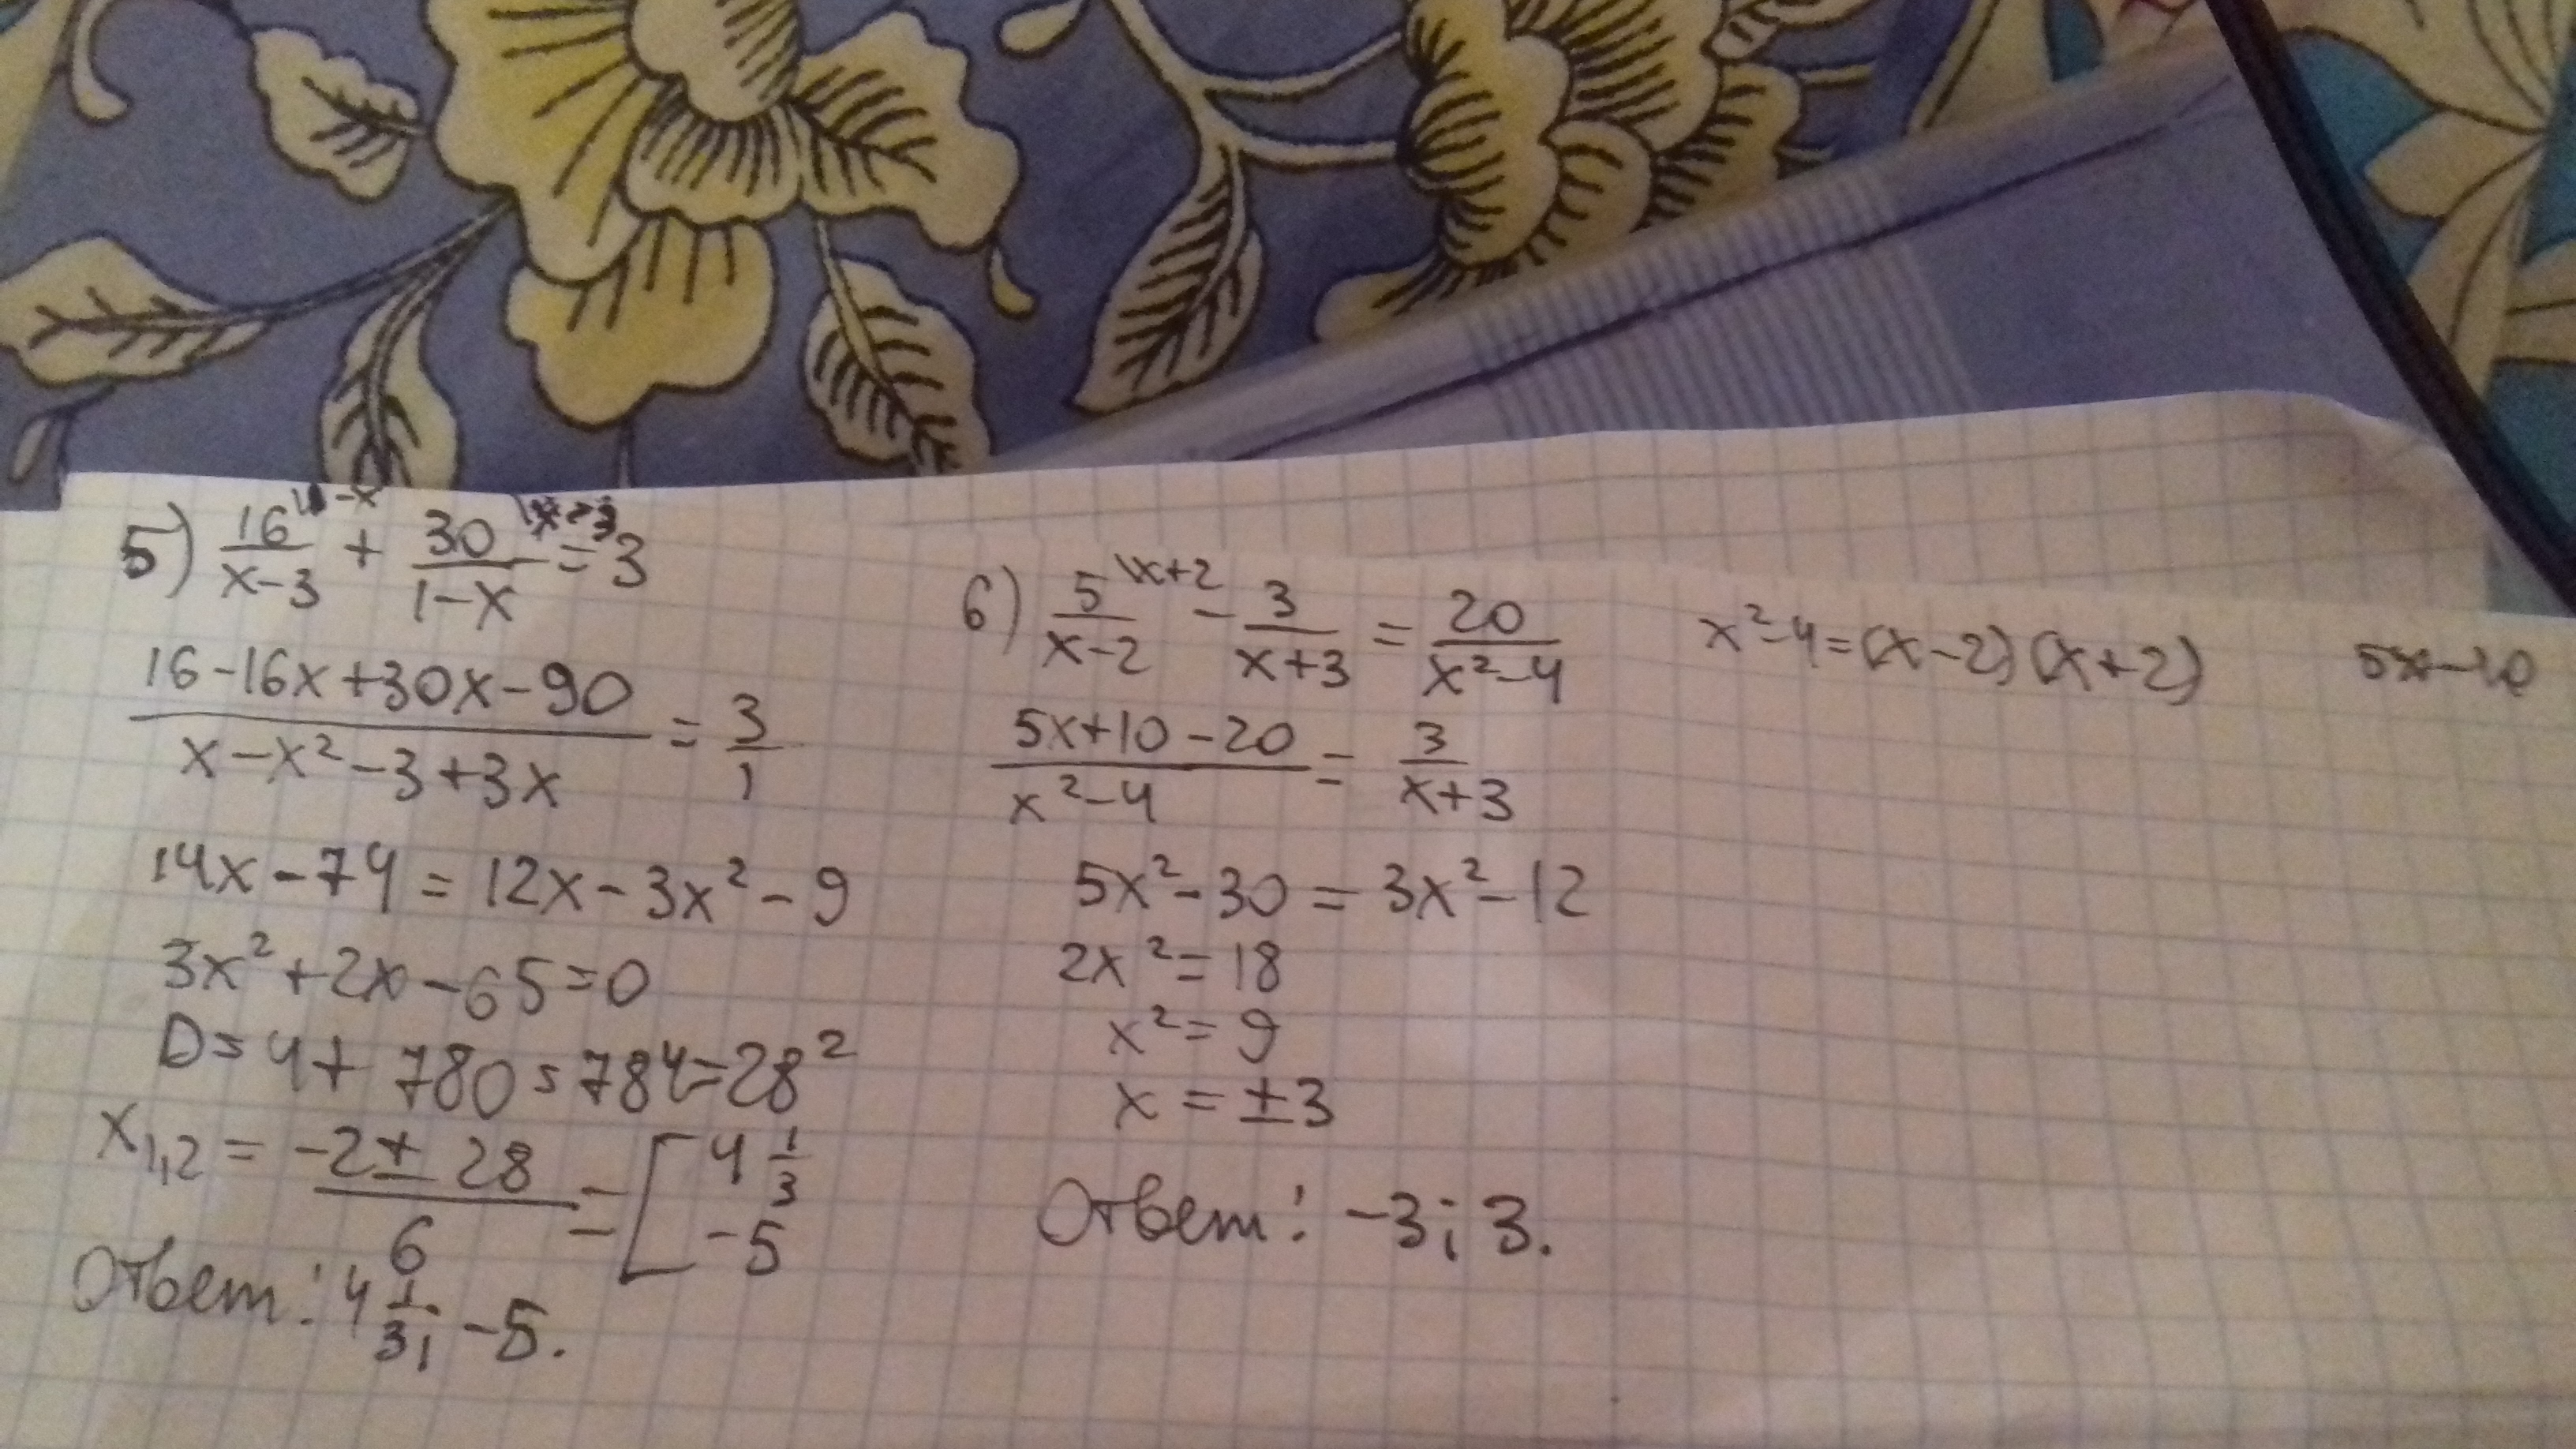 5) 16/(x-3) \1-x + 30/(1-x) \x-3 = 3
(16-16x+30x-90)/(x-x²-3+3x) = 3/1
14x-74=12x-3x²-9
3x²+2x-65=0
D=4+780=784=28²
x1,2 = (-2±28)/6 = [ 4 1/3
-5
Ответ: 4 1/3; -5.
6) 5/(x-2) \x+2 - 3/(x+3) = 20/(x²-4)
(5x+10-20)/(x²-4) = 3/(x+3)
5x²-30=3x²-12
2x²=18
x²=9
x=±3
Ответ: -3; 3.
x²-4=(x-2)(x+2)
5x-10